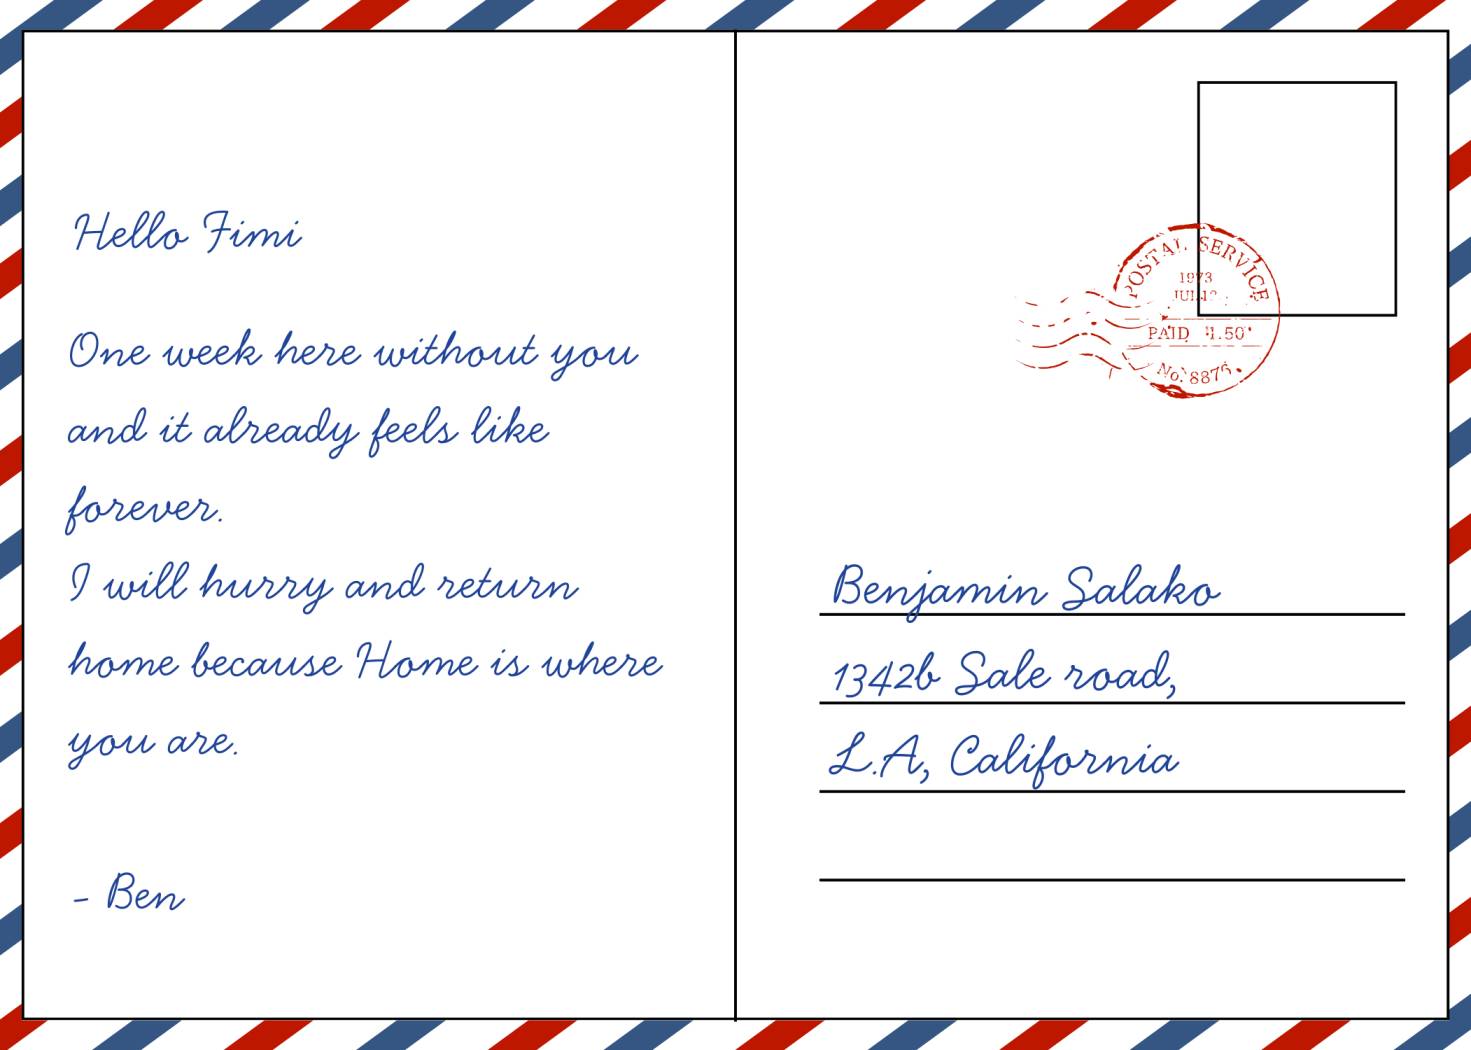 Hello Fimi
One week here without you
and it already feels like
forever.
I will hurry and return
home because Home is where
you are.
- Ben
POSTAL SERVICE
1973
PAID
No. 8875
Benjamin Salako
1342b Sale road,
L.A, California